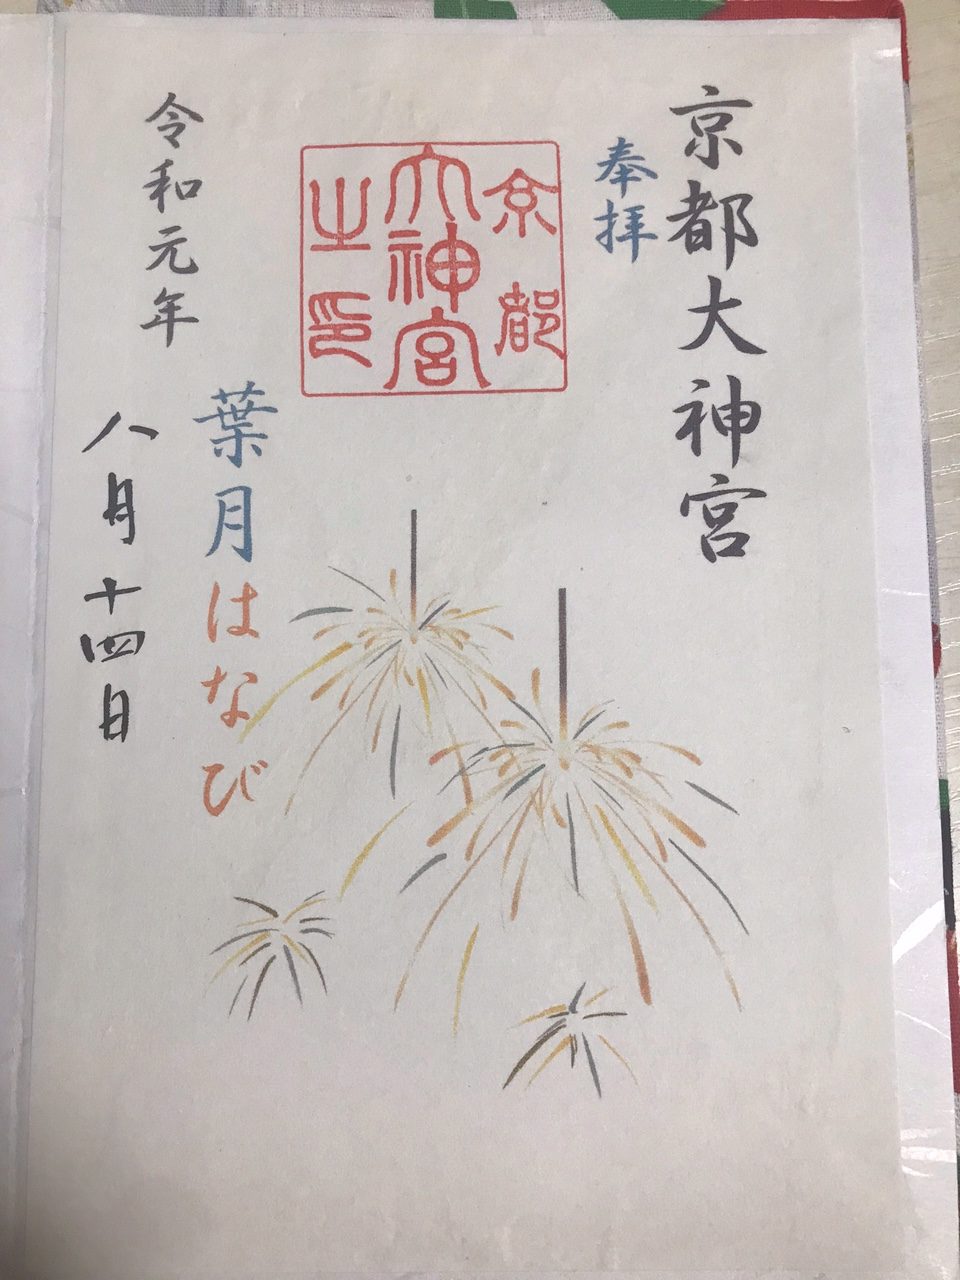 京都大神宮
奉拝
京都
大神宮
之印
葉月はなび
令和元年
八月十四日